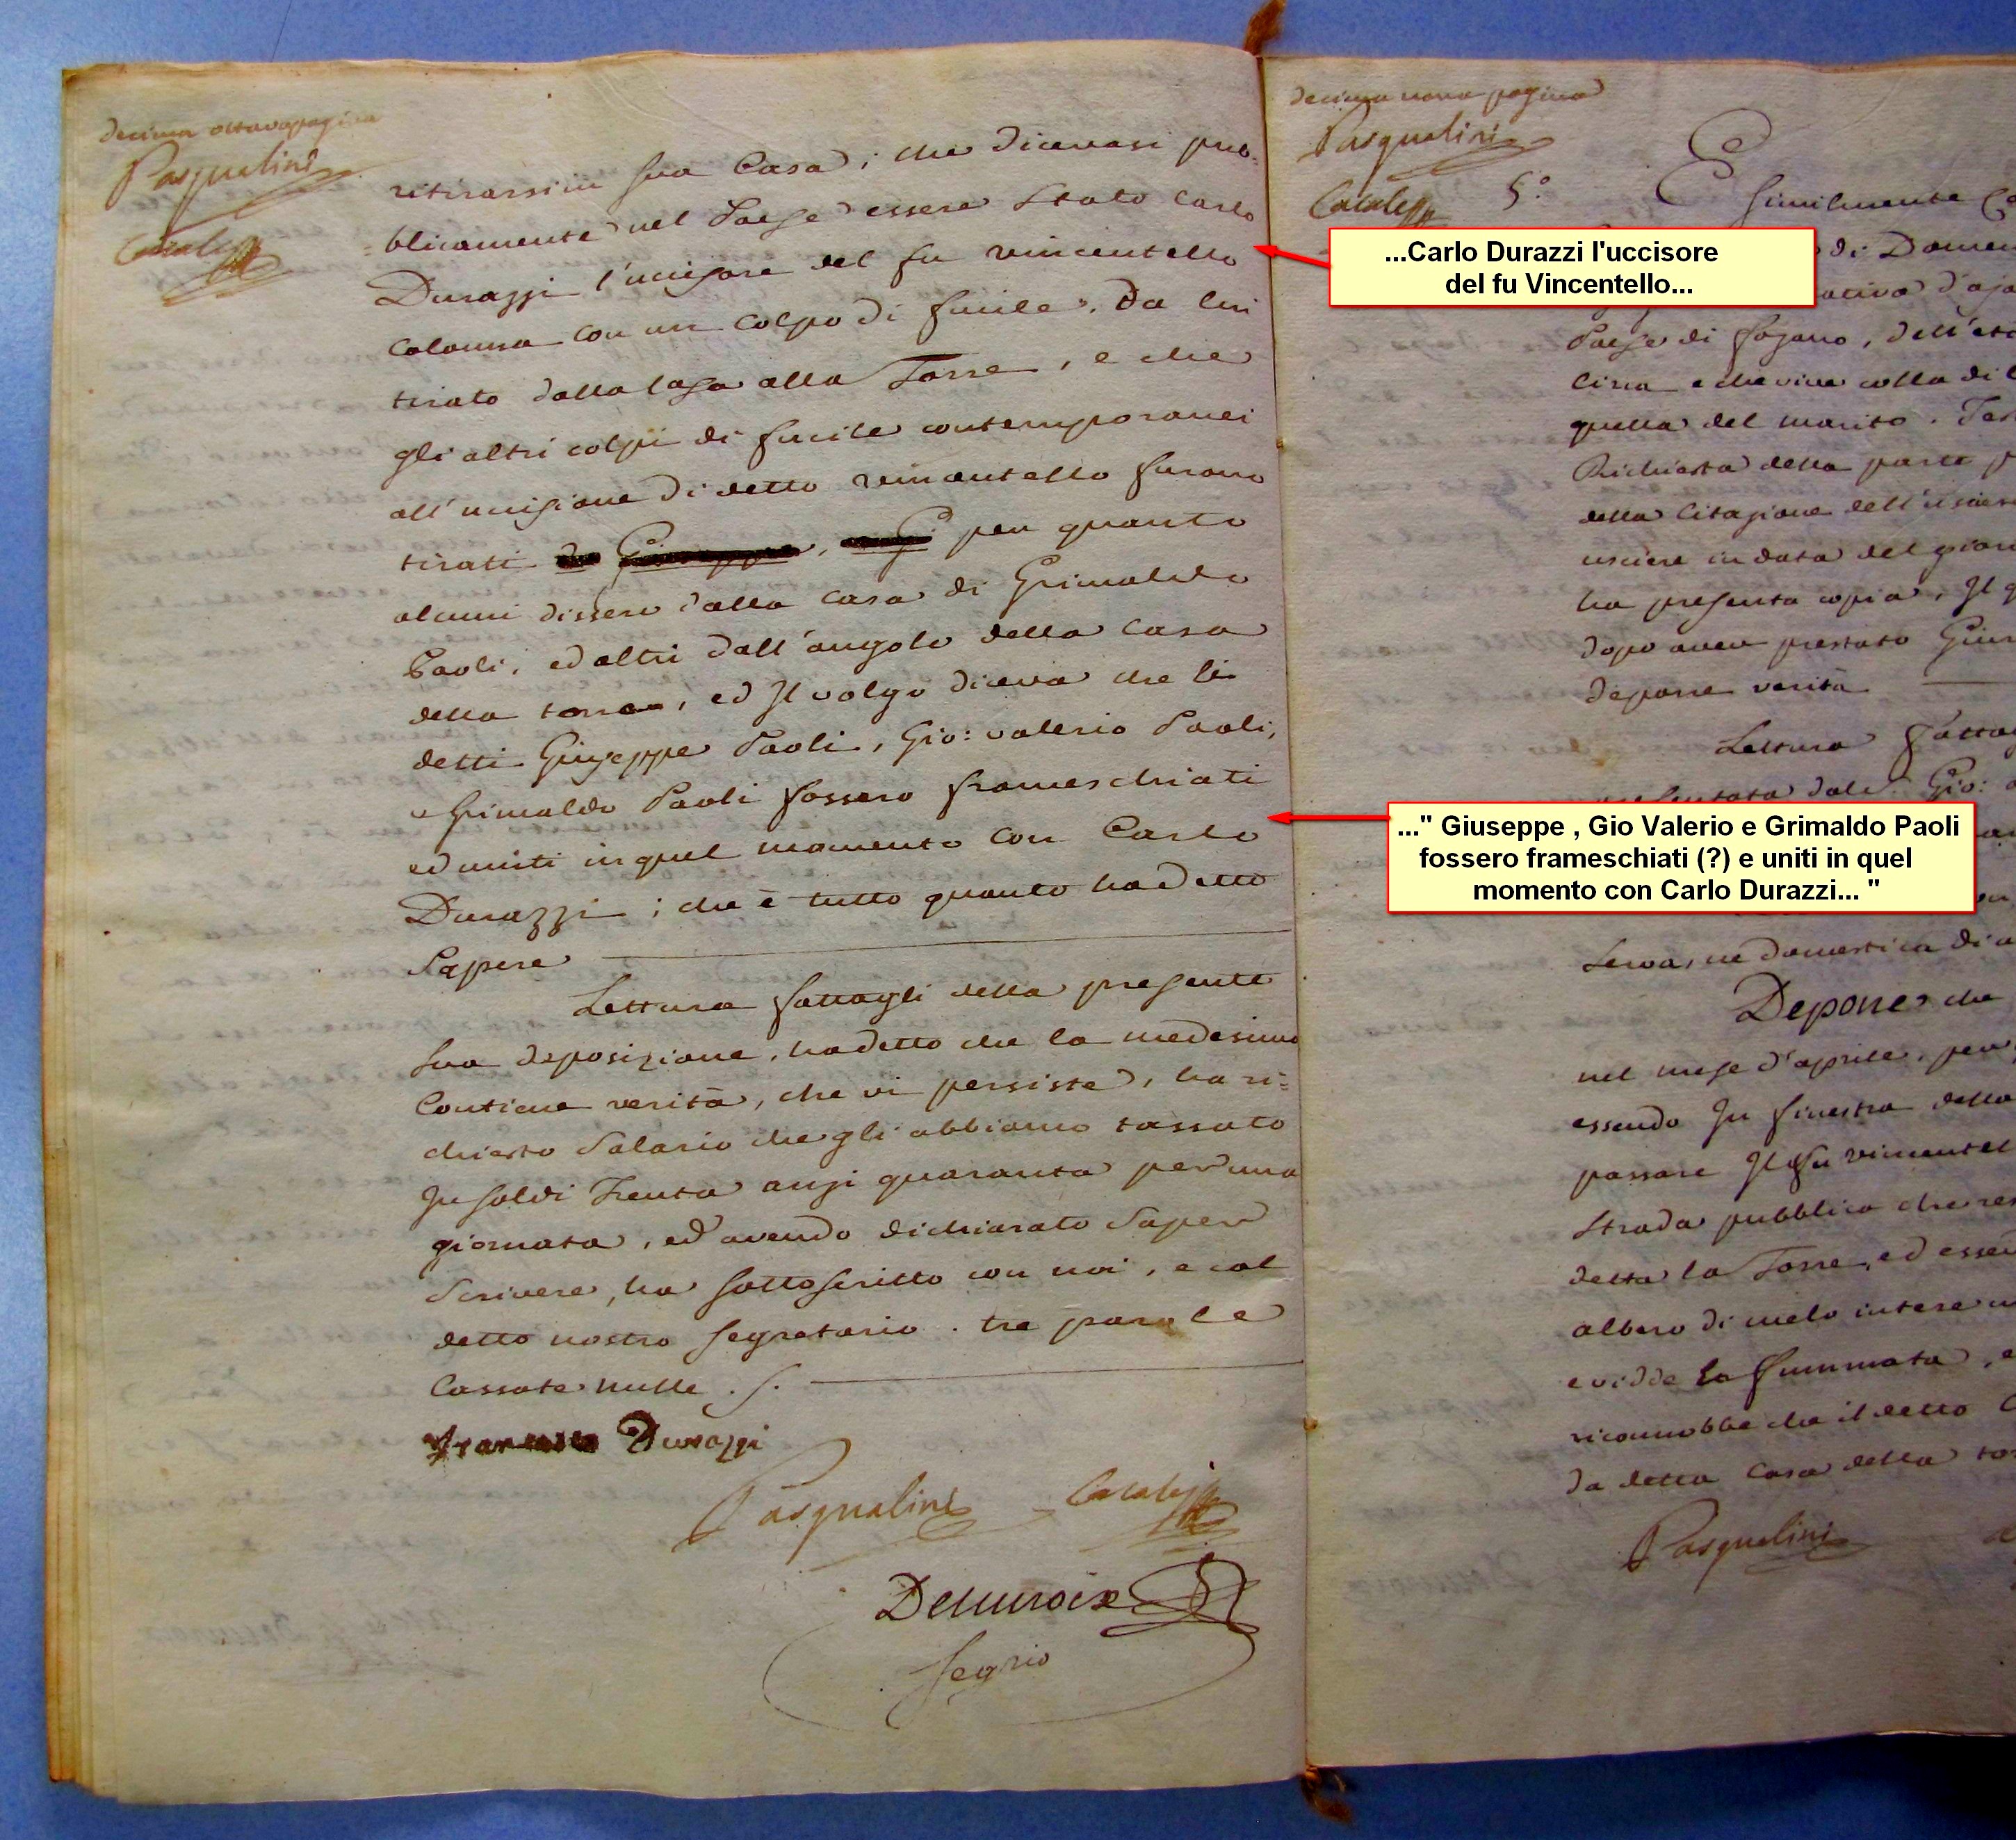 decima ottava pagina
Pasqualini
ritirarsi in sua Casa; che dicevasi pub=
blicamente nel Paese essere Stato Carlo
Durazzi l'uccisore del fu vincentello
Colonna con un Colpo di fucile, Da lui
tirato dalla Casa alla Torre, e che
gli altri colpi di fucile contemporanei
all'uccisione di detto vincentello furano
tirati per quanto
alcuni dissero dalla casa di Grimaldo
Paoli, ed altri dall'angolo della casa
della torre, ed Il volgo diceva che li
detti Giuseppe Paoli, Gio: valerio Paoli,
e Grimaldo Paoli fossero frameschiati
ed uniti in quel momento con Carlo
Durazzi; che è tutto quanto ha detto
Sapere
Lettura fattagli della presente
sua deposizione, ha detto che la medesima
Contiene verità, che vi persiste, ha ri=
chiesto Salario che gli abbiamo tassato
In soldi Trenta anzi quaranta per una
giornata, ed avendo dichiarato Saper
Scrivere, ha sottoscritto con noi, e col
detto nostro segretario. tre parole
Cassate nulle. /.
Durazzi
Pasqualini
Segrio
decima nona pagina
Pasqualini
5.° E Similmente
di Domen
ativa d'aja
Paese di fozano, dell'età
Circa e che vive colla di l
quella del marito. Tes
Richiesta della parte p
della Citazione dell'usciere
usciere in data del gior
ha presenta copia, Il q
dopo aver prestato Giur
deporre verità
Lettura fatta
presentata dal Gio:
Serva, ne domestica di a
Depone, che
nel mese d'aprile, per
essendo In finestra della
passare Il fu vincentel
Strada pubblica che res
detta la Torre, ed essen
albero di melo intese u
e vidde la fummata, e
riconnobbe che il detto C
da detta Casa della tor
Pasqualini
...Carlo Durazzi l'uccisore
del fu Vincentello...
..." Giuseppe , Gio Valerio e Grimaldo Paoli
fossero frameschiati (?) e uniti in quel
momento con Carlo Durazzi... "